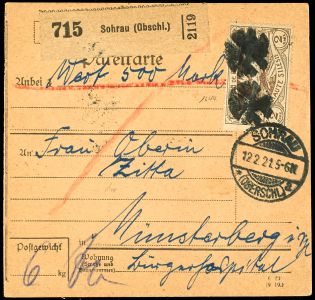 715 Sohrau (Obschl.)
2119
Paketkarte
Anbei Wert 500 Mark
Frau Oberin
Zitta
SOHRAU
12.2.21.5-6N.
(OBERSCHL.)
Münsterberg
Bürgerhospital
Postgewicht
6 kg
Wohnung